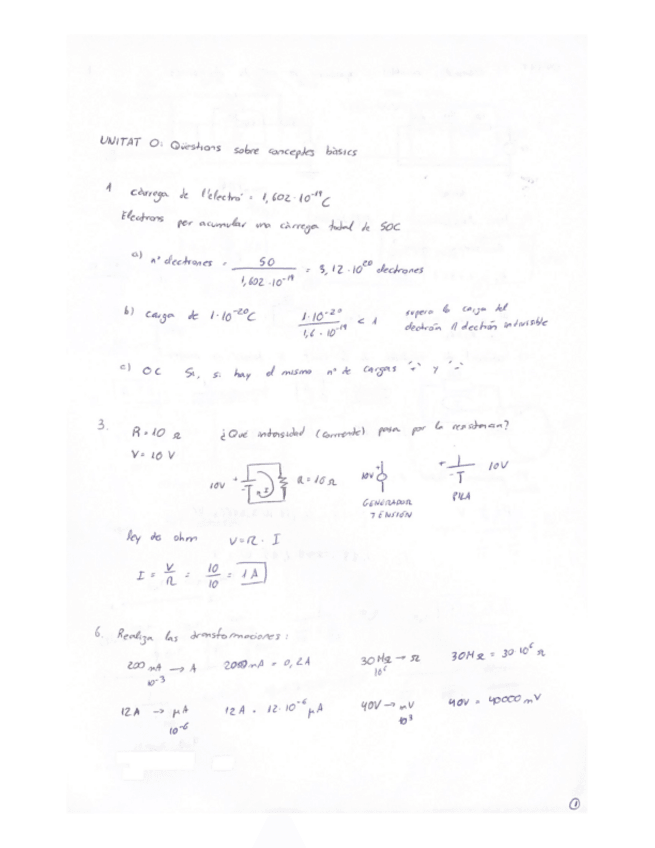 UNITAT 0: Qüestions sobre conceptes bàsics
1 càrrega de l'electró = 1,602·10⁻¹⁹ C
Electrons per acumular una càrrega total de 50C
a) nº electrones = 50 / 1,602·10⁻¹⁹ = 3,12·10²⁰ electrones
b) carga de 1·10⁻²⁰C 1·10⁻²⁰ / 1,6·10⁻¹⁹ < 1 supera la carga del
electrón. El electrón indivisible
c) 0C Si, si hay el mismo nº de cargas "+" y "-"
3. R = 10 Ω ¿Qué intensidad (corriente) pasa por la resistencia?
V = 10 V
10V + - I R = 10Ω 10V + + - 10V
GENERADOR TENSIÓN
PILA
ley de ohm V = R · I
I = V/R = 10/10 = 1A
6. Realiza las transformaciones:
200 mA → A 200mA = 0,2A 30MΩ → Ω 30MΩ = 30·10⁶ Ω
10⁻³ 10⁶
12A → μA 12A = 12·10⁻⁶ μA 40V → mV 40V = 40000 mV
10⁻⁶ 10³
1